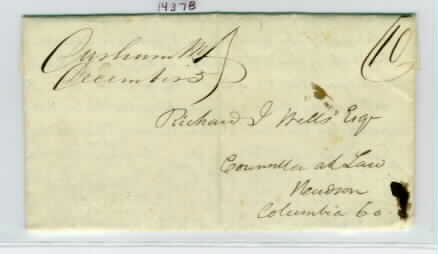 14378
Durham NY
December 3
10
Richard I Wells Esqr
Councellor at Law
Hudson
Columbia Co.